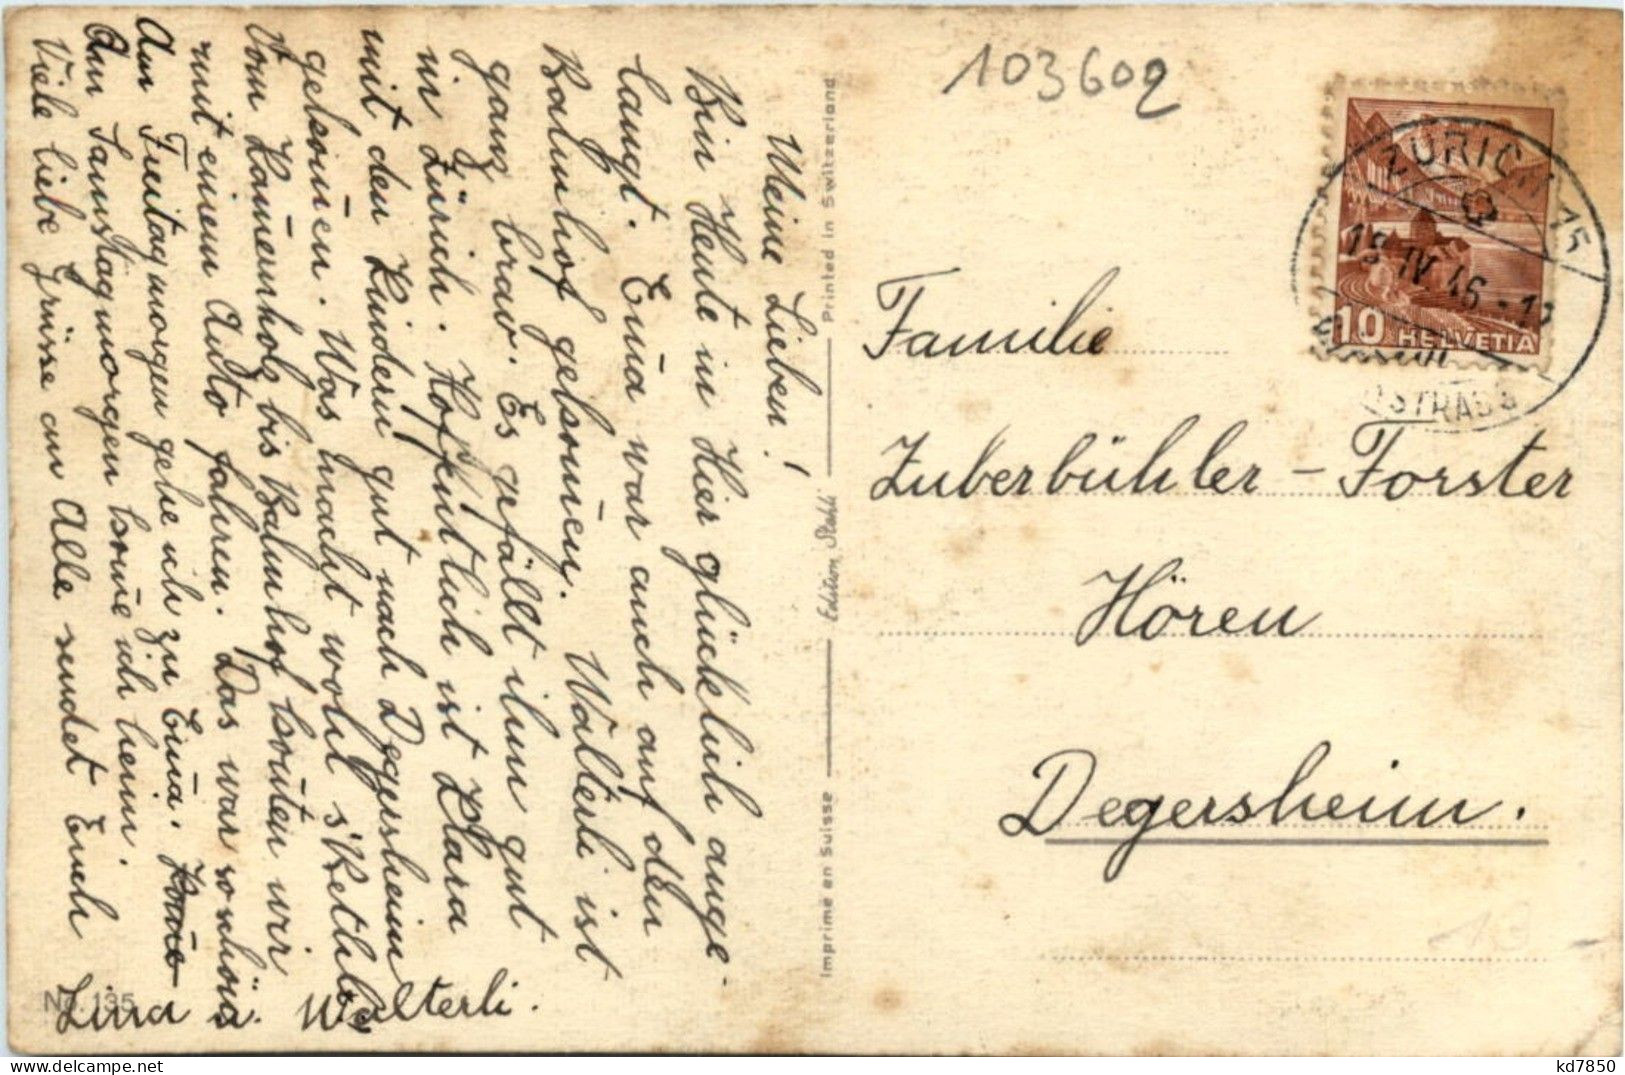 Meine Lieben!
Bin Heute in Hier glücklich ange-
langt. Em̄a war auch auf den
Bahnhof gekom̄en. Walterli ist
ganz brav. Es gefällt ihm gut
in Zürich. Hoffentlich ist Klara
mit den Kindern gut nach Degersheim
gekom̄en. Was macht wohl s'Bethli.
Vom Lam̄enholz bis Bahnhof kon̄ten wir
mit einem Auto fahren. Das war so schön.
Am Freitagmorgen gehe ich zu Em̄a. Kom̄e
Am Samstagmorgen kom̄e ich heim.
Viele liebe Grüsse an Alle sendet Euch
Lina u. Walterli.
No. 135
Printed in Switzerland
Edition Stehli
Imprimé en Suisse
103602
ZÜRICH 15
IV 46
10 HELVETIA
Familie
Zuberbühler - Forster
Hören
Degersheim.
kd7850